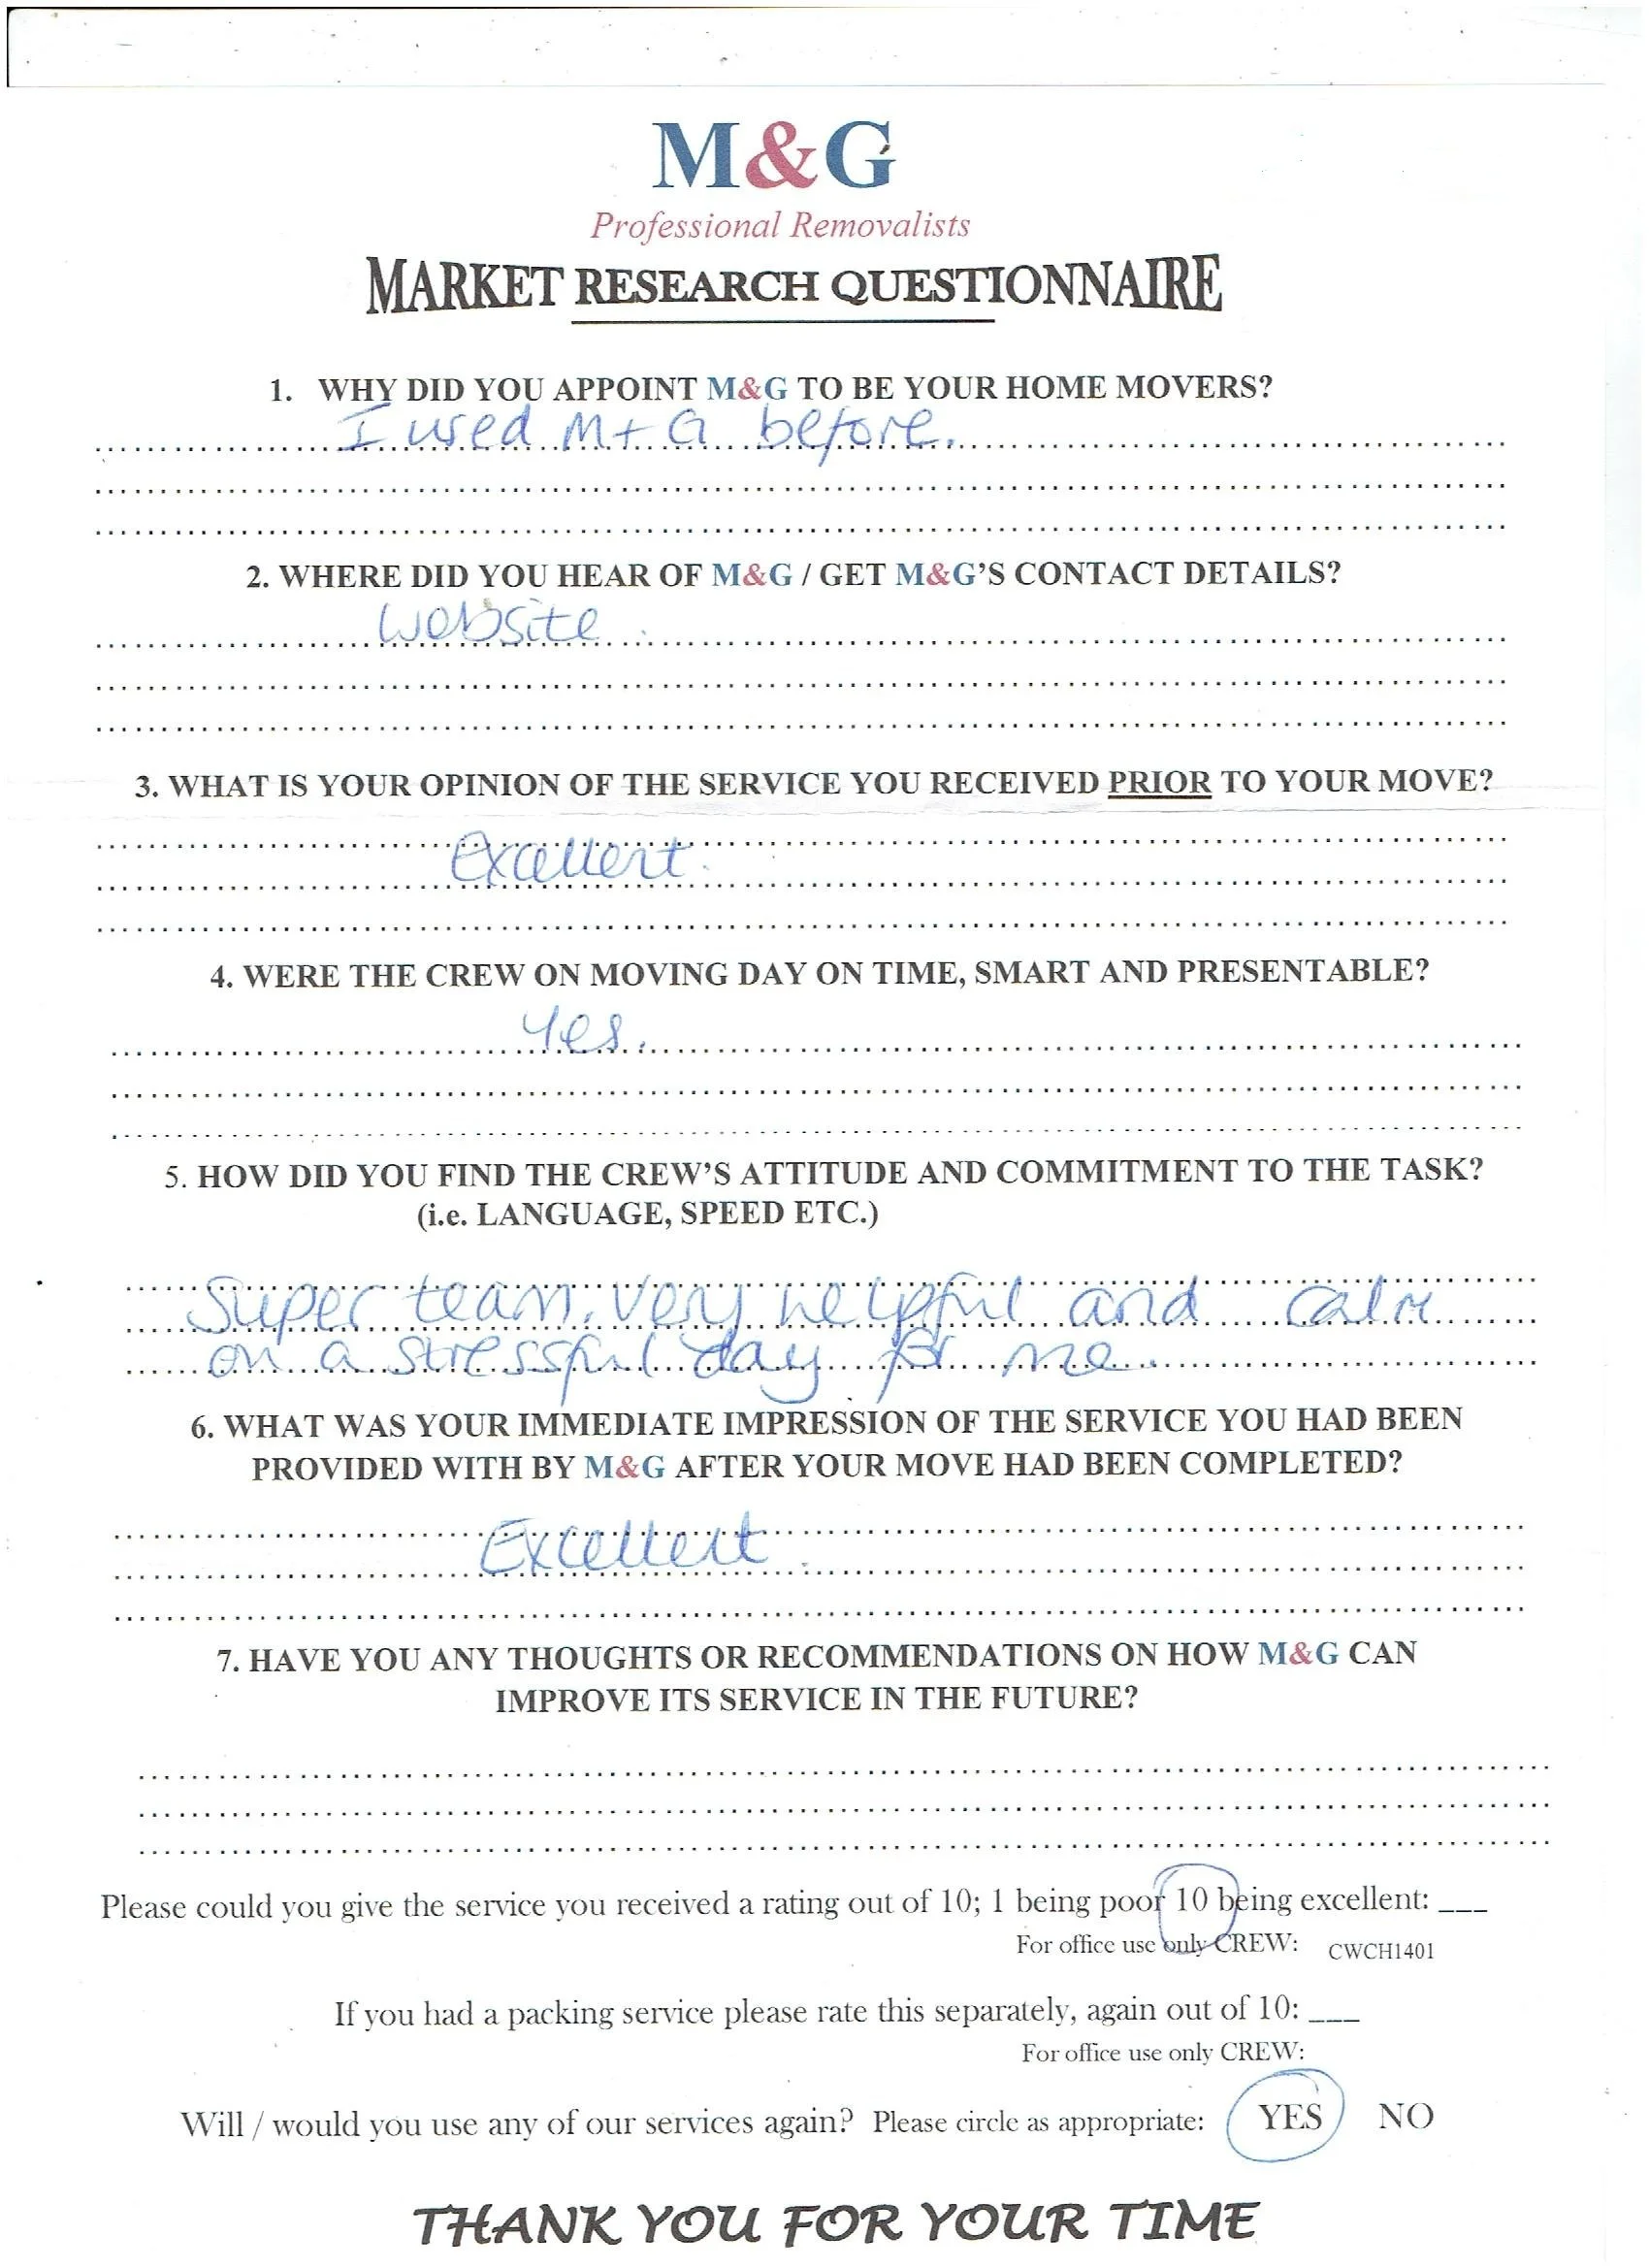 M&G
Professional Removalists
MARKET RESEARCH QUESTIONNAIRE
1. WHY DID YOU APPOINT M&G TO BE YOUR HOME MOVERS?
I used M+G before.
2. WHERE DID YOU HEAR OF M&G / GET M&G'S CONTACT DETAILS?
Website.
3. WHAT IS YOUR OPINION OF THE SERVICE YOU RECEIVED PRIOR TO YOUR MOVE?
Excellent.
4. WERE THE CREW ON MOVING DAY ON TIME, SMART AND PRESENTABLE?
Yes.
5. HOW DID YOU FIND THE CREW'S ATTITUDE AND COMMITMENT TO THE TASK?
(i.e. LANGUAGE, SPEED ETC.)
Super team. Very helpful and calm
on a stressful day for me.
6. WHAT WAS YOUR IMMEDIATE IMPRESSION OF THE SERVICE YOU HAD BEEN
PROVIDED WITH BY M&G AFTER YOUR MOVE HAD BEEN COMPLETED?
Excellent.
7. HAVE YOU ANY THOUGHTS OR RECOMMENDATIONS ON HOW M&G CAN
IMPROVE ITS SERVICE IN THE FUTURE?
Please could you give the service you received a rating out of 10; 1 being poor 10 being excellent: ___
For office use only CREW: CWCH1401
If you had a packing service please rate this separately, again out of 10: ___
For office use only CREW:
Will / would you use any of our services again? Please circle as appropriate: YES NO
THANK YOU FOR YOUR TIME